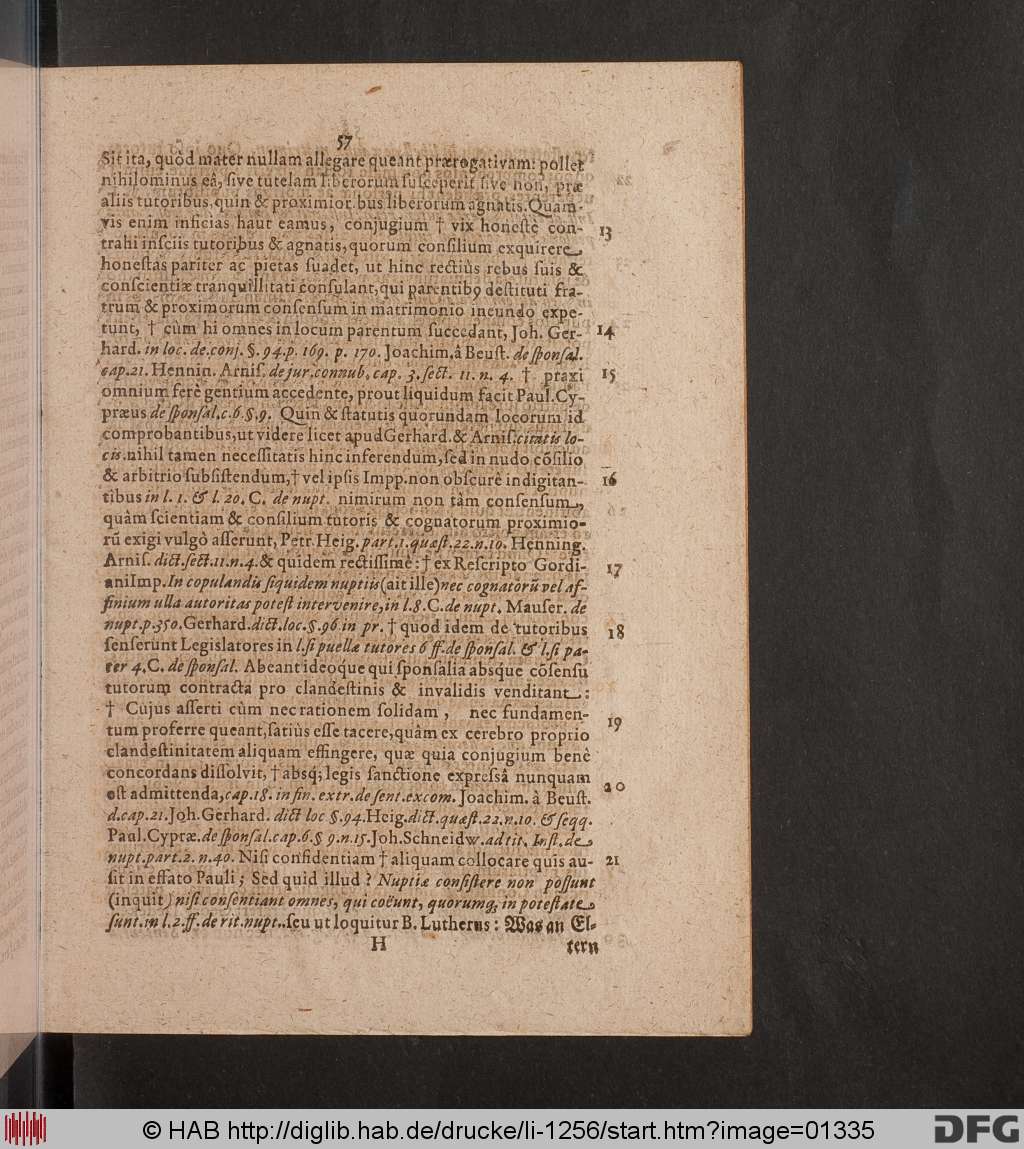 57
Sit ita, quòd mater nullam allegare queant prærogativam: pollet
nihilominus eâ, sive tutelam liberorum susceperit sive non, præ
aliis tutoribus, quin & proximior bus liberorum agnatis. Quam-
vis enim inficias haut eamus, conjugium † vix honestè con- 13
trahi insciis tutoribus & agnatis, quorum consilium exquirere
honestas pariter ac pietas suadet, ut hinc rectiùs rebus suis &
conscientiæ tranquillitati consulant, qui parentibꝰ destituti fra-
trum & proximorum consensum in matrimonio ineundo expe-
tunt, † cùm hi omnes in locum parentum succedant, Joh. Ger- 14
hard. in loc. de. conj. §. 94. p. 169. p. 170. Joachim. â Beust. de sponsal.
cap. 21. Hennin. Arnis. de jur. connub. cap. 3. sect. 11. n. 4. † praxi 15
omnium ferè gentium accedente, prout liquidum facit Paul. Cy-
præus de sponsal. c. 6. §. 9. Quin & statutis quorundam locorum id
comprobantibus, ut videre licet apud Gerhard. & Arnis. citatis lo-
cis. nihil tamen necessitatis hinc inferendum, sed in nudo cōsilio
& arbitrio subsistendum, † vel ipsis Impp. non obscurè indigitan- 16
tibus in l. 1. & l. 20. C. de nupt. nimirum non tàm consensum,
quàm scientiam & consilium tutoris & cognatorum proximio-
rū exigi vulgò asserunt, Petr. Heig. part. 1. quæst. 22. n. 10. Henning.
Arnis. dict. sect. 11. n. 4. & quidem rectissimè: † ex Rescripto Gordi- 17
ani Imp. In copulandis siquidem nuptiis (ait ille) nec cognatorū vel af-
finium ulla autoritas potest intervenire, in l. 8. C. de nupt. Mauser. de
nupt. p. 350. Gerhard. dict. loc. §. 96. in pr. † quod idem de tutoribus 18
senserunt Legislatores in l. si puellæ tutores 6 ff. de sponsal. & l. si pa-
ter 4. C. de sponsal. Abeant ideoque qui sponsalia absque cōsensu
tutorum contracta pro clandestinis & invalidis venditant:
† Cujus asserti cùm nec rationem solidam, nec fundamen- 19
tum proferre queant, satiùs esse tacere, quàm ex cerebro proprio
clandestinitatem aliquam effingere, quæ quia conjugium benè
concordans dissolvit, † absq; legis sanctione expressâ nunquam 20
est admittenda, cap. 18. in fin. extr. de sent. excom. Joachim. à Beust.
d. cap. 21. Joh. Gerhard. dict loc §. 94. Heig. dict. quæst. 22. n. 10. & seqq.
Paul. Cypræ. de sponsal. cap. 6. § 9. n. 15. Joh. Schneidw. ad tit. Inst. de
nupt. part. 2. n. 40. Nisi confidentiam † aliquam collocare quis au- 21
sit in effato Pauli; Sed quid illud? Nuptiæ consistere non possunt
(inquit) nisi consentiant omnes, qui coëunt, quorumq; in potestate
sunt. in l. 2. ff. de rit. nupt.. seu ut loquitur B. Lutherus: Was an El-
H tern
© HAB http://diglib.hab.de/drucke/li-1256/start.htm?image=01335
DFG